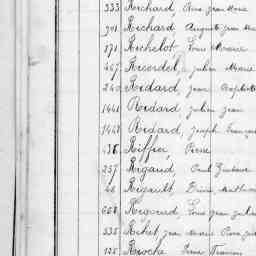 333 Richard, Jean Marie
Richard, Auguste Jean
171 Richelot, Louis Marie
447 Ricordel, Julien Marie
240 Ridard, Jean Baptiste
1441 Ridard, Julien Jean
1448 Ridard, Joseph François
436 Riffier, Pierre
257 Rigaud, Paul Gustave
48 Rigault,
604 Rigourd, Louis Jean Julien
535 Rihet, Jean Marie Pierre
125 Rioche François